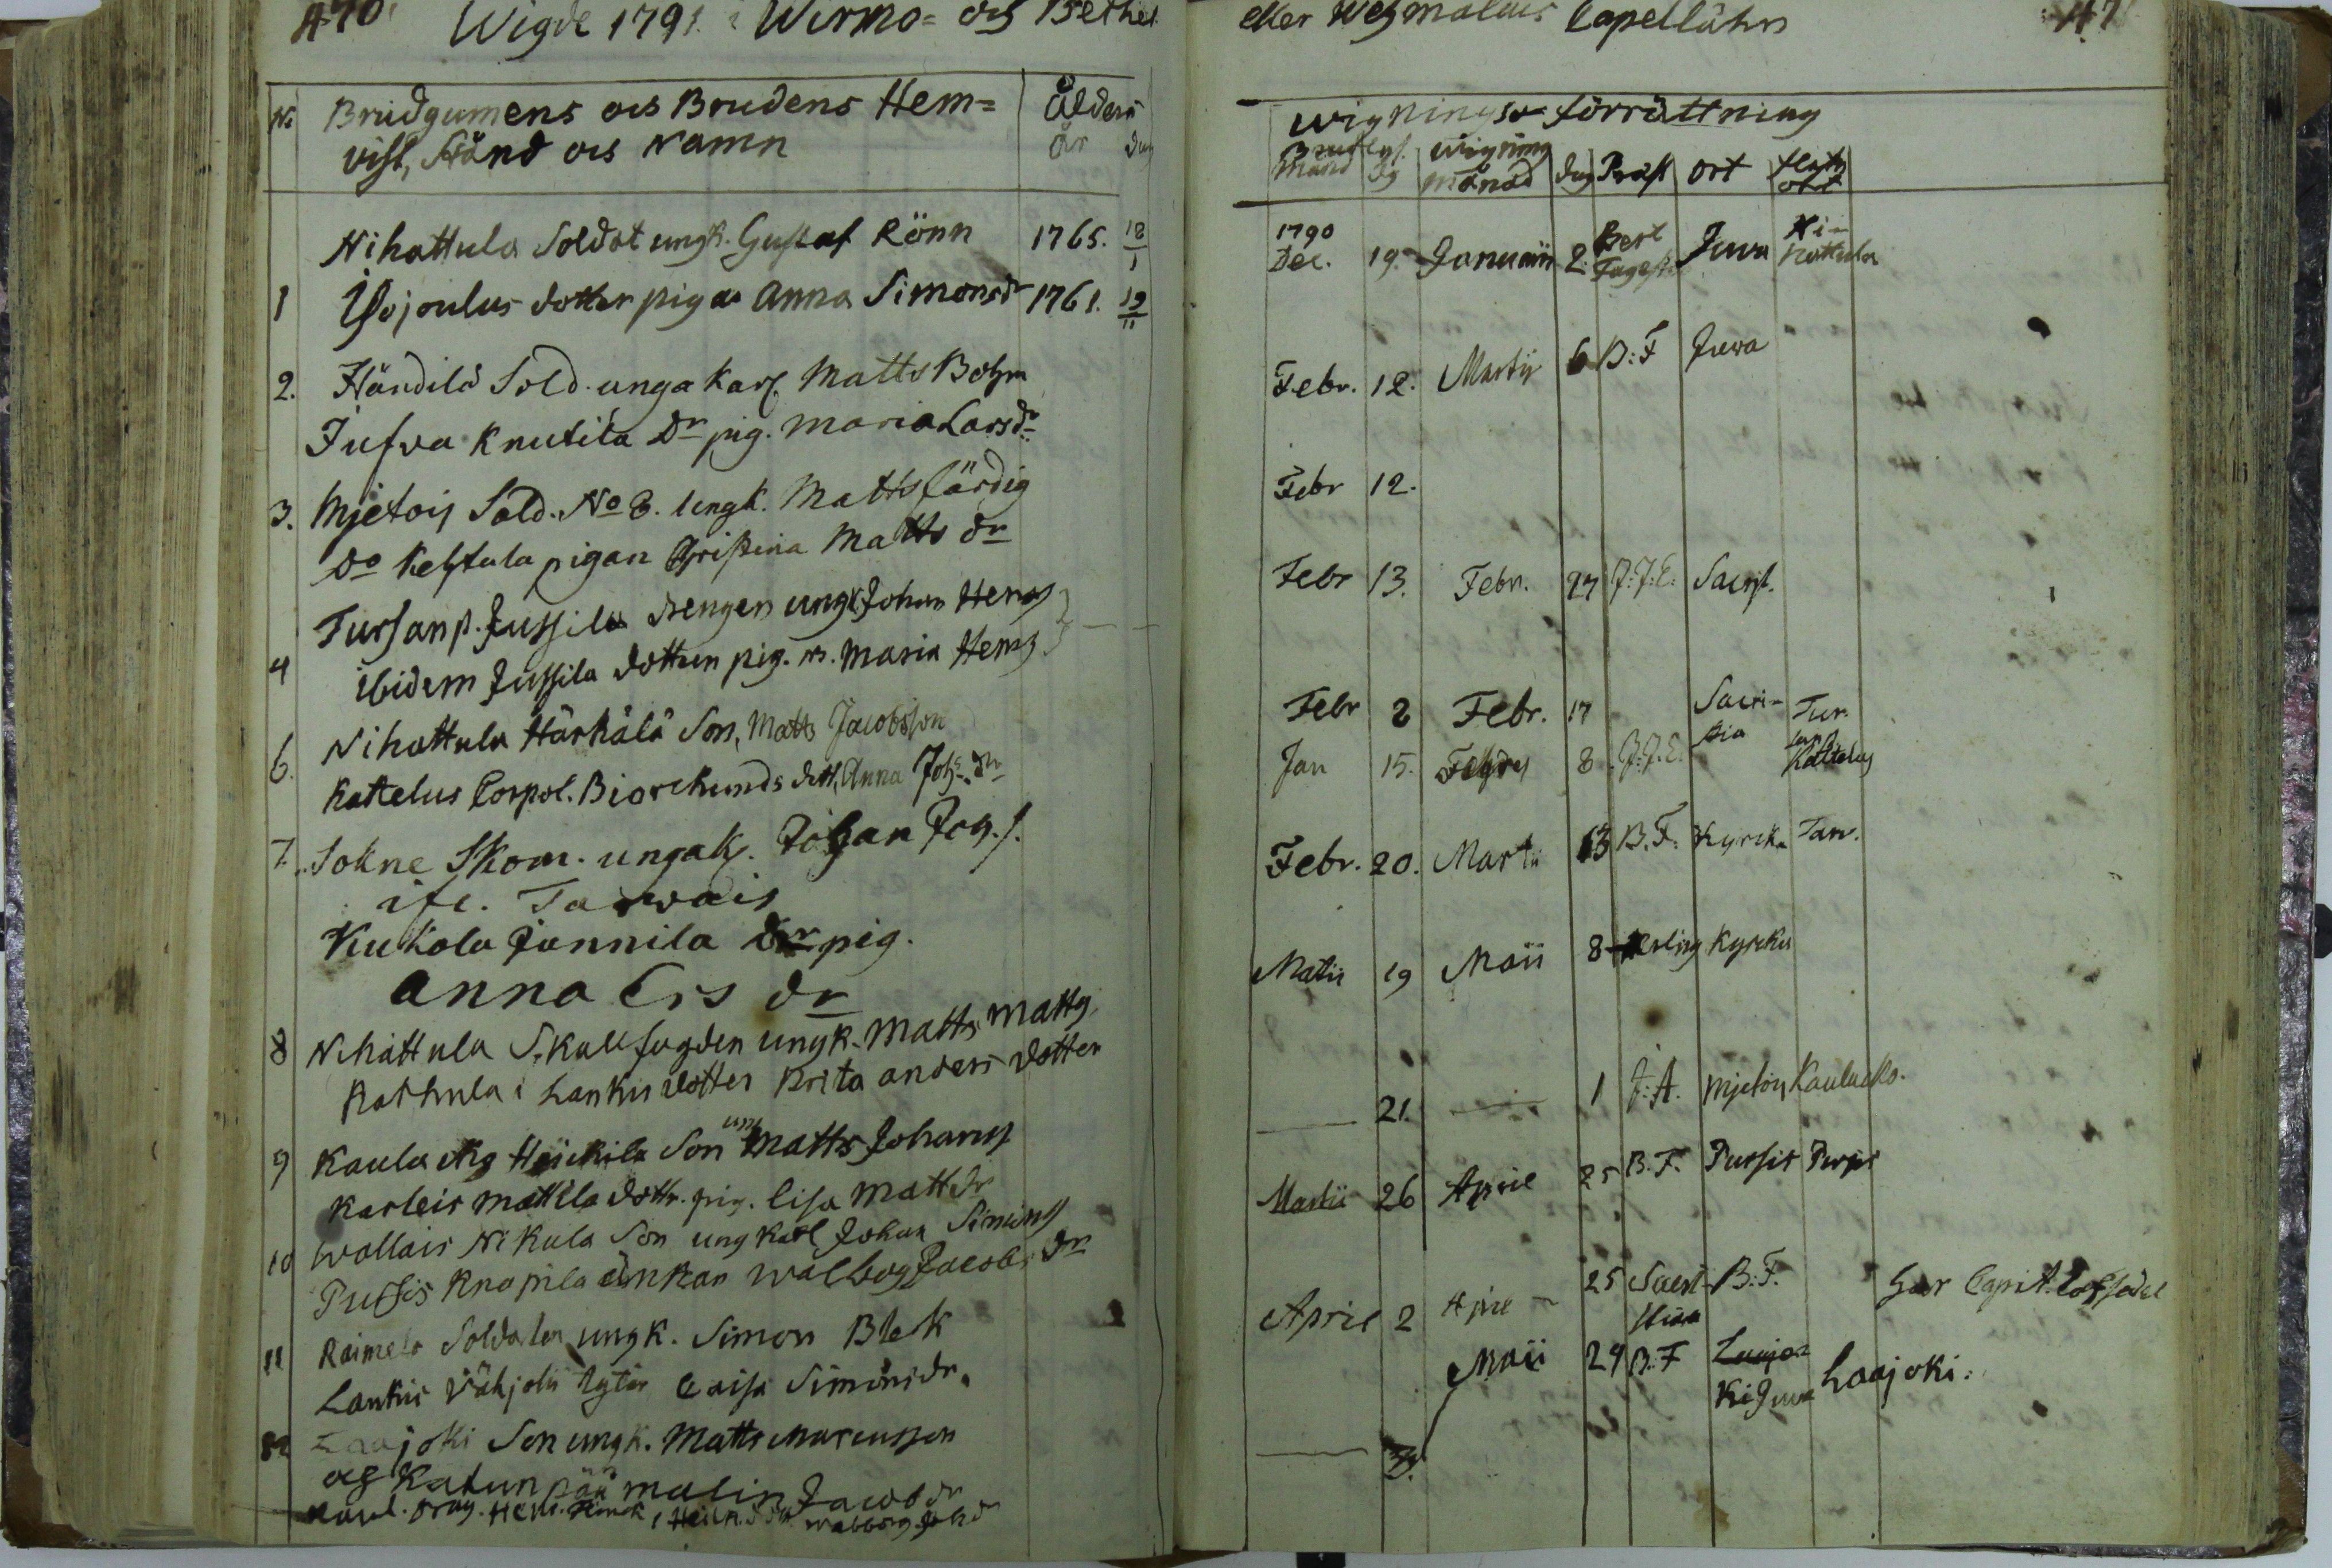 470 Wigde 1791. i Wirmo= och Bethel
No Brudgumens och Brudens Hem=
vist, Stånd och Namn
Ålders
år dag
Nihattula Soldat ungk. Gustaf Rönn 1765. 18/1
1 Isojoulus dotter pigan Anna Simonsdr 1761. 19/11
2. Händilä Sold. unga karl. Matts Bohm
Jufva Knutila Dr pig. Maria Larsdr
3. Mjetois Sold. No 8. ungk. Matts färdig
Do Kehtula pigan Christina Matts dr
Tursanp. Jussila drengen ungk Johan Hens
4 ibidem Jussila dottren pig. Maria Hens
6. Nihattula Härkälä Son, Matts Jacobsson
Kattelus Corpol. Biorcklunds dott, Anna Johs. dr
7. Sokne Skom. ungak. Johan Joh. s.
ifr. Tarvais
Kukola Jannila dr pig.
Anna Ers dr
8 Nihattula Skallfogden ungk. Matts Matts
Kathula i Lankis dotter Brita anders dotter
9 Kaulacko Heickila Son ung Matts Johanss
Karleis Mattila dottr. pig. Lisa Mattsdr
10 Wallais Nikula Son ung karl Johan Simons
Pussis Knapila änkan Walborg Jacobs dr
11 Raimela Soldaten ungk. Simon Blek
Lankis Vähjoki Caisa Simonsdr.
12 Laajoki Son ungk. Matts Marcusson
och Katunpää Malin Jacobdr
eller Wehmalais Capellähn 47
Wignings-förrättning
Brudlys. Wigning
Månd dg Månad dag Präst ort
1790
Dec. 19. Januarii 2. Bert Fagest. Juva Ni-hattula
Febr. 12. Martii 6 B: F Juva
Febr 12.
Febr 13. Febr. 27 J: J: E: Sacrist.
Febr 2 Febr. 17 Sacri-stia Tur-sanp
Jan 15. 8 J. J. E. Kattelus
Febr. 20. Martii 13 B. F. Kyrcka Tarv.
Matii 19 Maii 8 Kyrcka
21. 1 J: A. Mjetois Kaulacko.
Martii 26 April 25 B. F. Pussis Pussis
April 2 April 25 Sacri-stian B: F. har Capit. lofsedel
Maii 29 B: F Juva Laajoki: